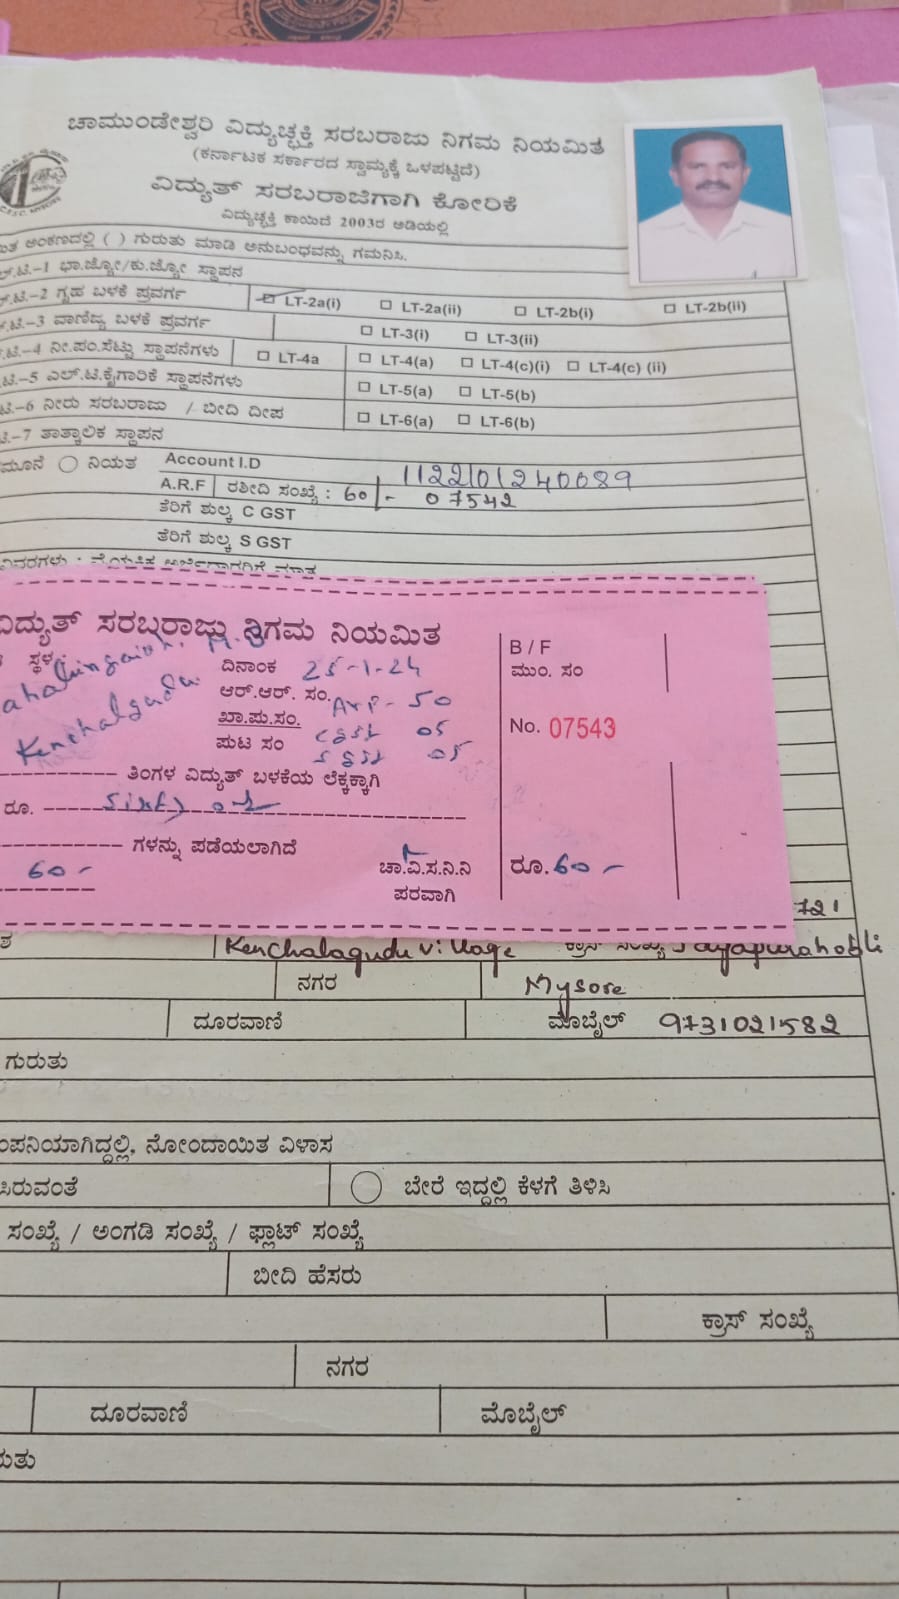 ಚಾಮುಂಡೇಶ್ವರಿ ವಿದ್ಯುಚ್ಛಕ್ತಿ ಸರಬರಾಜು ನಿಗಮ ನಿಯಮಿತ
(ಕರ್ನಾಟಕ ಸರ್ಕಾರದ ಸ್ವಾಮ್ಯಕ್ಕೆ ಒಳಪಟ್ಟಿದೆ)
ವಿದ್ಯುತ್ ಸರಬರಾಜಿಗಾಗಿ ಕೋರಿಕೆ
ವಿದ್ಯುಚ್ಛಕ್ತಿ ಕಾಯಿದೆ 2003ರ ಅಡಿಯಲ್ಲಿ
ಅಂಕಣದಲ್ಲಿ ( ) ಗುರುತು ಮಾಡಿ ಅನುಬಂಧವನ್ನು ಗಮನಿಸಿ.
.ಟಿ.-1 ಭಾ.ಜ್ಯೋ/ಕು.ಜ್ಯೋ ಸ್ಥಾಪನ
.ಟಿ.-2 ಗೃಹ ಬಳಕೆ ಪ್ರವರ್ಗ LT-2a(i) LT-2a(ii) LT-2b(i) LT-2b(ii)
.ಟಿ.-3 ವಾಣಿಜ್ಯ ಬಳಕೆ ಪ್ರವರ್ಗ LT-3(i) LT-3(ii)
.ಟಿ-4 ನೀ.ಪಂ.ಸೆಟ್ಟು ಸ್ಥಾಪನೆಗಳು LT-4a LT-4(a) LT-4(c)(i) LT-4(c) (ii)
.ಟಿ-5 ಎಲ್.ಟಿ.ಕೈಗಾರಿಕೆ ಸ್ಥಾಪನೆಗಳು LT-5(a) LT-5(b)
ಟಿ-6 ನೀರು ಸರಬರಾಜು / ಬೀದಿ ದೀಪ LT-6(a) LT-6(b)
ಟಿ.-7 ತಾತ್ಕಾಲಿಕ ಸ್ಥಾಪನ
ಮೂನೆ ನಿಯತ Account I.D 1122101240089
A.R.F ರಶೀದಿ ಸಂಖ್ಯೆ : 60/- 07542
ತೆರಿಗೆ ಶುಲ್ಕ C GST
ತೆರಿಗೆ ಶುಲ್ಕ S GST
ವಿದ್ಯುತ್ ಸರಬರಾಜು ನಿಗಮ ನಿಯಮಿತ
B / F
ಸ್ಥಳ
ದಿನಾಂಕ 25-1-24
ಮುಂ. ಸಂ
ಆರ್.ಆರ್. ಸಂ. ARF- 50
Kenchalgudu
ಖಾ.ಪು.ಸಂ. CGST 05
No. 07543
ಪುಟ ಸಂ SGST 05
ತಿಂಗಳ ವಿದ್ಯುತ್ ಬಳಕೆಯ ಲೆಕ್ಕಕ್ಕಾಗಿ
ರೂ. Sixty
ಗಳನ್ನು ಪಡೆಯಲಾಗಿದೆ
60-
ಚಾ.ವಿ.ಸ.ನಿ.ನಿ
ರೂ.60-
ಪರವಾಗಿ
721
Kenchalagudu village ಕ್ರಾಸ್ ಸಂಖ್ಯೆ Jayapurahobli
ನಗರ Mysore
ದೂರವಾಣಿ ಮೊಬೈಲ್ 9731021582
ಗುರುತು
ಂಪನಿಯಾಗಿದ್ದಲ್ಲಿ, ನೋಂದಾಯಿತ ವಿಳಾಸ
ಸಿರುವಂತೆ ಬೇರೆ ಇದ್ದಲ್ಲಿ ಕೆಳಗೆ ತಿಳಿಸಿ
ಸಂಖ್ಯೆ / ಅಂಗಡಿ ಸಂಖ್ಯೆ / ಫ್ಲಾಟ್ ಸಂಖ್ಯೆ
ಬೀದಿ ಹೆಸರು
ಕ್ರಾಸ್ ಸಂಖ್ಯೆ
ನಗರ
ದೂರವಾಣಿ ಮೊಬೈಲ್
ರುತು